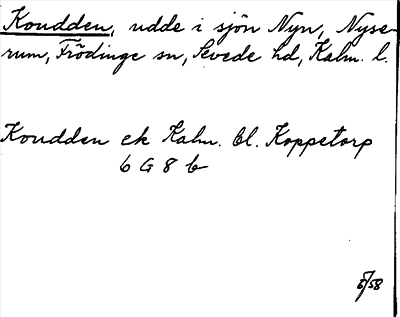 Koudden, udde i sjön Nyn, Nyse-
rum, Frödinge sn, Sevede hd, Kalm. l.
Koudden ek Kalm. bl. Koppetorp
6 G 8 b
6/58